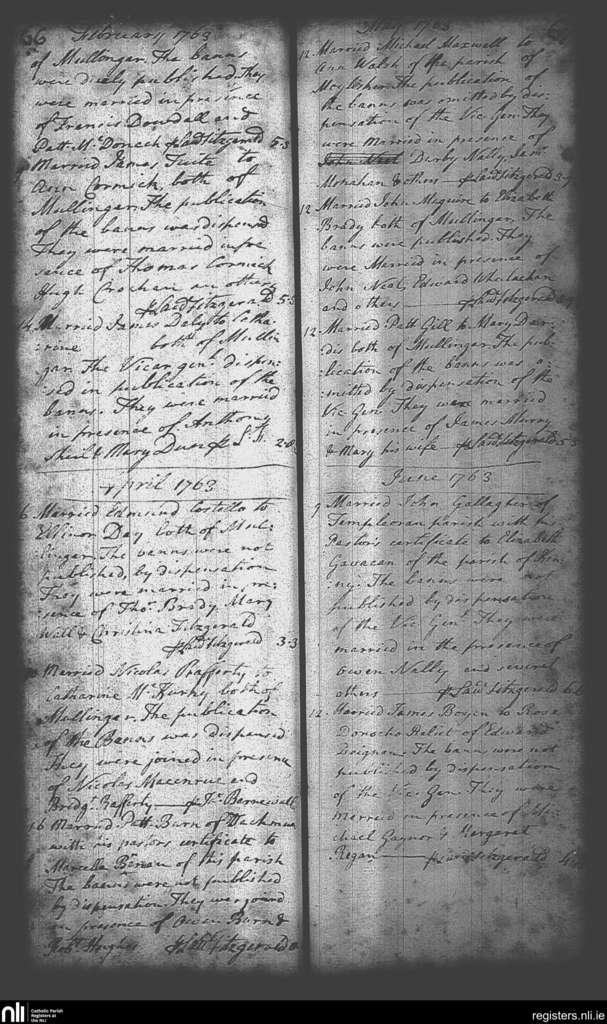 66 February 1763
of Mullingar. The banns
were duely published. They
were married in presence
of Francis Dowdall and
Patt. Mc. Donach Lau: Fitzgerald 5:5
Married James Tuite to
Ann Cormick, both of
Mullingar. The publication
of the banns was dispensed
They were married in pre
sence of Thomas Cormick
Hugh Croghan an others
Laud Fitzgerald 5:5
Married James Daly to Catha
:rine both of Mullin
gar. The Vicar genl. dispen:
:sed in publication of the
banns. They were married
in presence of Anthony
& Mary Dun
April 1763
6 Married Edmund Costello to
Ellinor Day both of Mul:
:lingar. The banns were not
published, by dispensation
They were married in pre:
sence of Thos. Brady, Mary
Wall & Christina Fitzgerald
Laud Fitzgerald 3:3
Married Nicolas Rafferty to
Catharine Mc Kurky both of
Mullingar. The publication
of the Banns was dispensed
They were joined in presence
of Nicolas Macenrue and
Bridgt. Rafferty Jn. Barnewall
16 Married Patt. Burn of
with his pastors certificate to
Marcella of this parish
The banns were not published
by dispensation. They were joined
in presence of Owen Burn &
Robt. Hughes Laud Fitzgerald
May 1763
12 Married Michael Maxwell to
Ann Walsh of the parish of
The publication of
the banns was omitted by dis:
pensation of the Vic. Gen. They
were Married in presence of
Darby Nally, Jams.
Monahan & others Laud Fitzgerald
12 Married John Maguire to Elizabeth
Brady both of Mullingar. The
banns were published. They
were Married in presence of
John Nealy, Edward Whelachan
and others Laud Fitzgerald
12 Married Patt Gill to Mary Dar:
:dis both of Mullingar. The pub:
:lication of the banns was o:
:mitted by dispensation of the
Vic. Genl. They were married
in presence of James Murry
& Mary his wife Laud Fitzgerald 5:5
June 1763
9 Married John Gallagher of
Templeoran parish with his
Pastors certificate to Elizabeth
Gavacan of the parish of
The banns were not
published by dispensation
of the Vic. Genl. They were
married in the presence of
Owen Nally and several
others Laud Fitzgerald
12 Married James Boyen to Rose
Donocho Relict of Edward
Duignan. The banns were not
published by dispensation
of the Vic. Gen. They were
married in presence of Mi:
chael Gaynor & Margaret
Regan Laud Fitzgerald
nli
Catholic Parish
Registers at
the NLI
registers.nli.ie